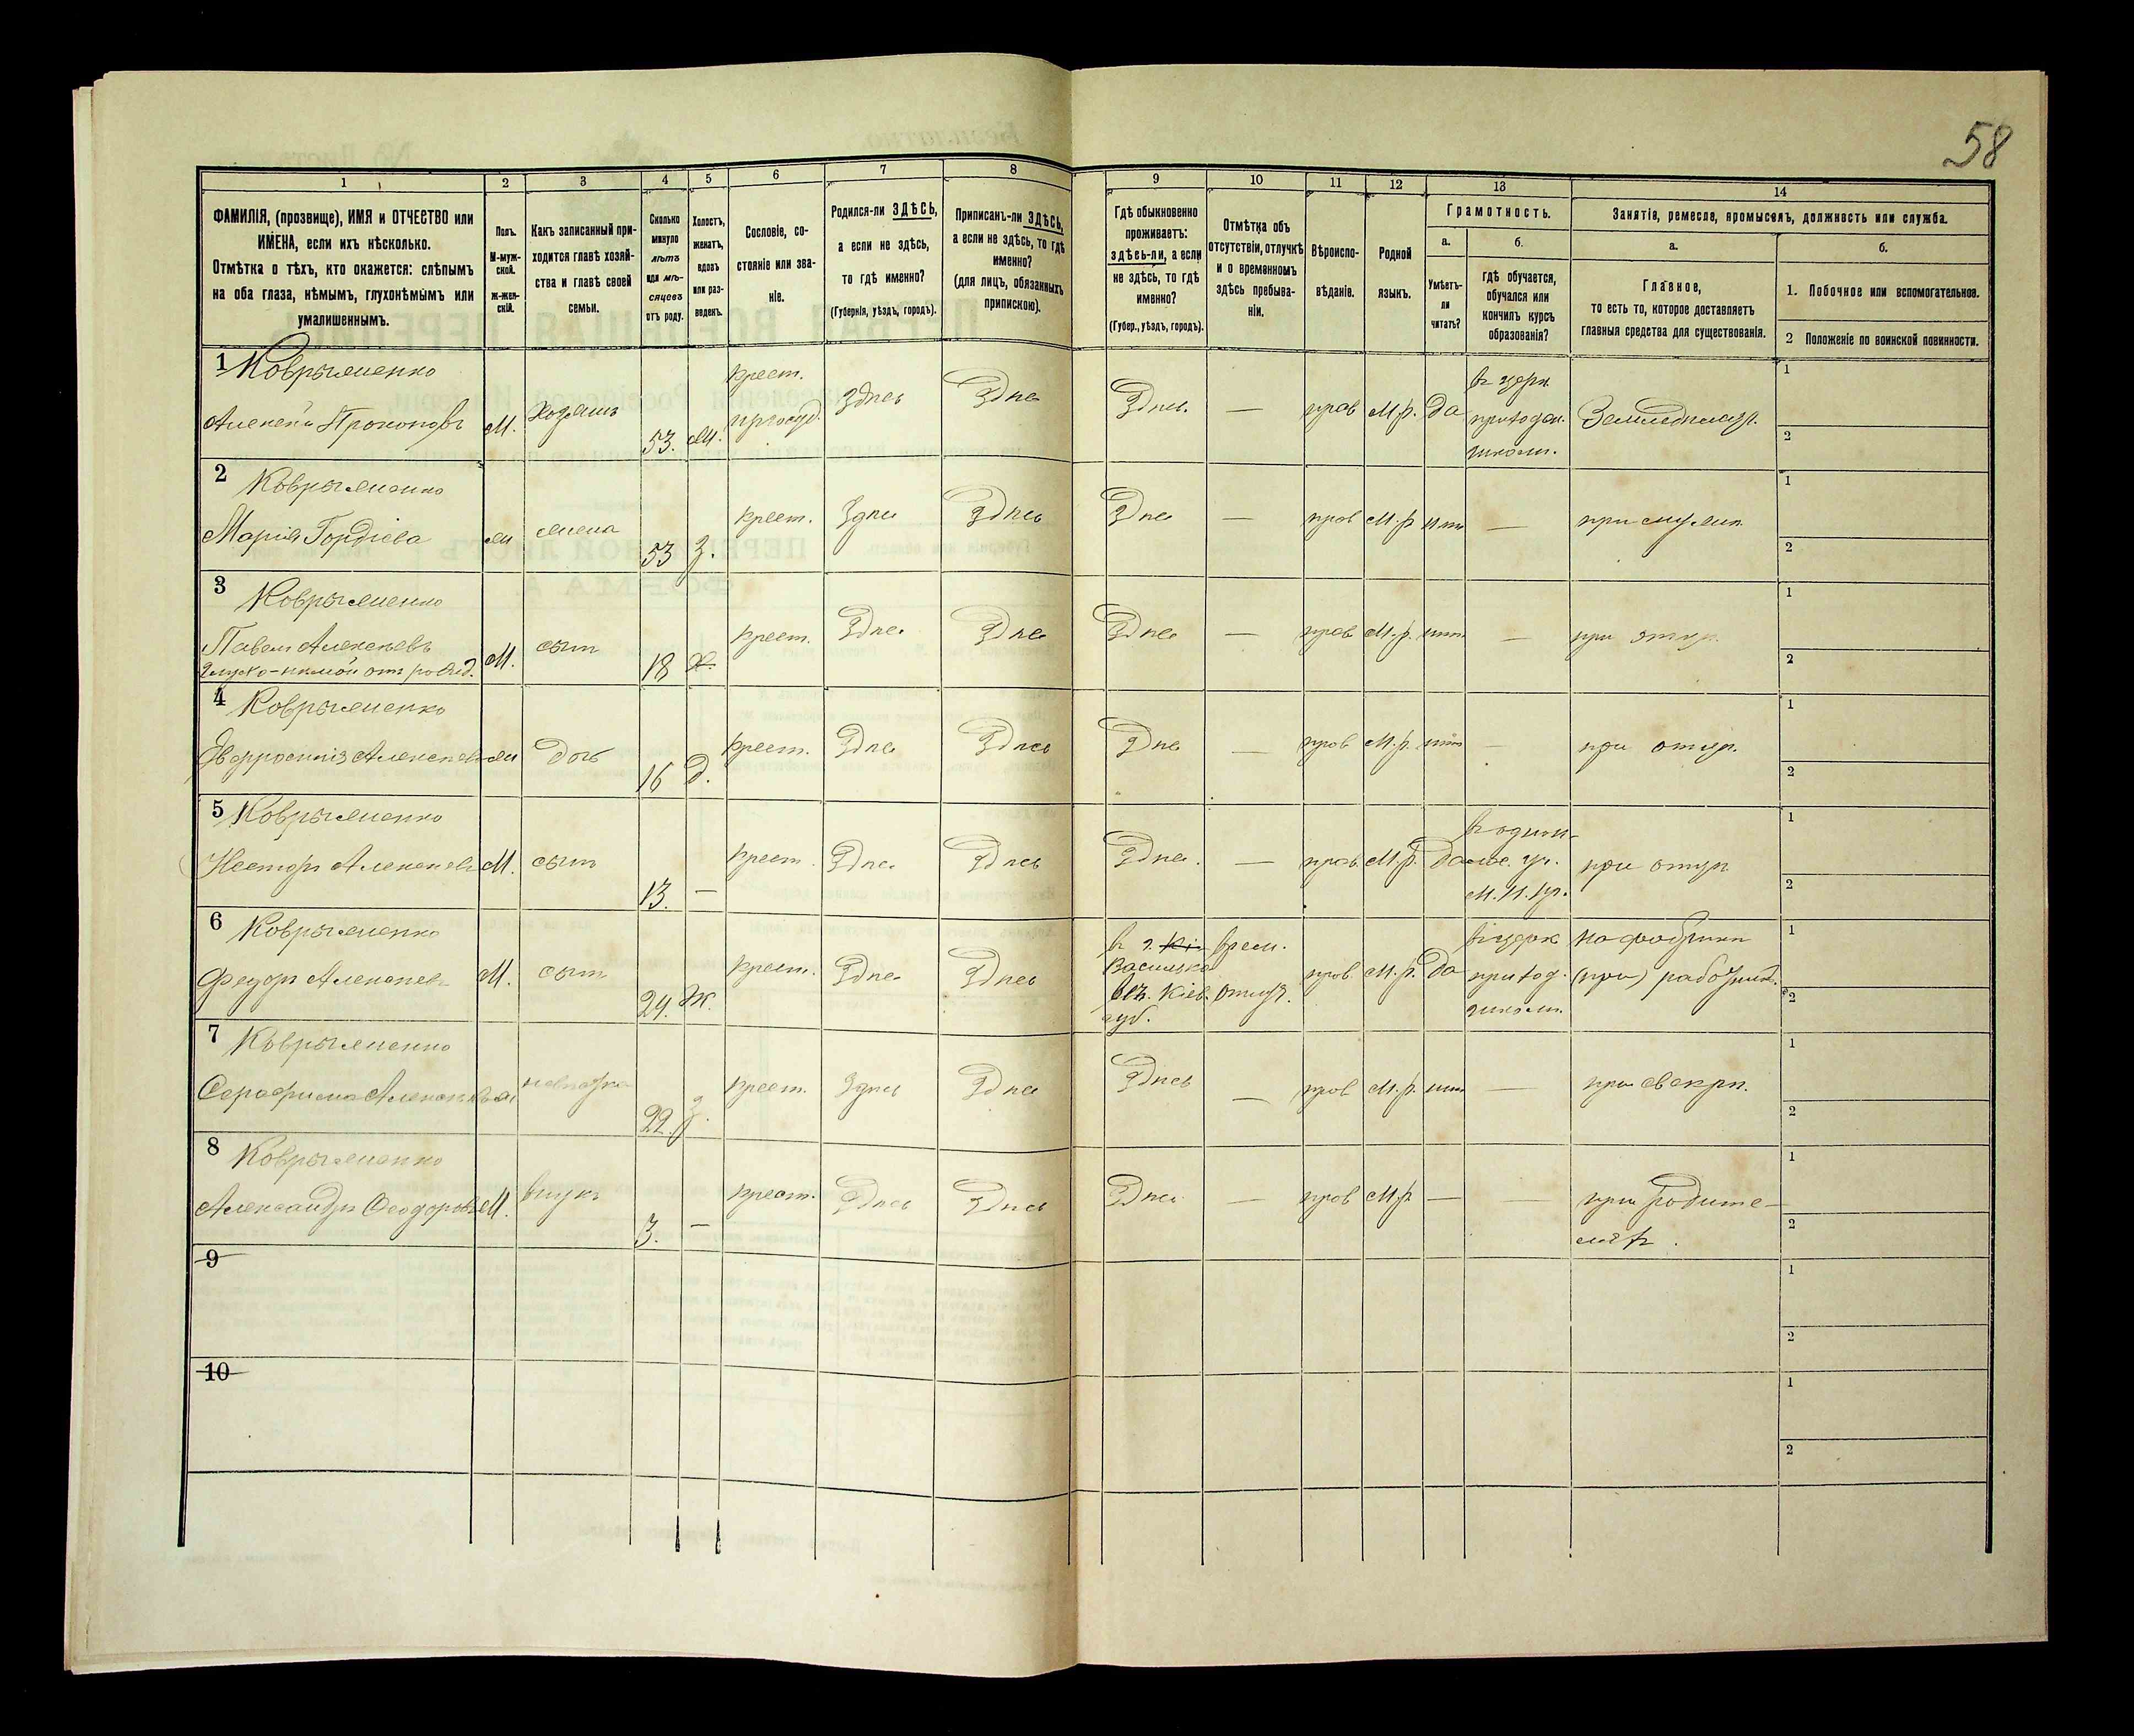 58
1
2
3
4
5
6
7
8
9
10
11
12
13
14
ФАМИЛІЯ, (прозвище), ИМЯ и ОТЧЕСТВО или
ИМЕНА, если ихъ нѣсколько.
Отмѣтка о тѣхъ, кто окажется: слѣпымъ
на оба глаза, нѣмымъ, глухонѣмымъ или
умалишеннымъ.
Полъ.
М-муж-
ской.
ж-жен-
скій.
Какъ записанный при-
ходится главѣ хозяй-
ства и главѣ своей
семьи.
Сколько
минуло
лѣтъ
или мѣ-
сяцевъ
отъ роду.
Холостъ,
женатъ,
вдовъ
или раз-
веденъ.
Сословіе, со-
стояніе или зва-
ніе.
Родился-ли ЗДѢСЬ,
а если не здѣсь,
то гдѣ именно?
(Губернія, уѣздъ, городъ).
Приписанъ-ли ЗДѢСЬ,
а если не здѣсь, то гдѣ
именно?
(для лицъ, обязанныхъ
припискою).
Гдѣ обыкновенно
проживаетъ:
здѣсь-ли, а если
не здѣсь, то гдѣ
именно?
(Губер., уѣздъ, городъ).
Отмѣтка объ
отсутствіи, отлучкѣ
и о временномъ
здѣсь пребыва-
ніи.
Вѣроиспо-
вѣданіе.
Родной
языкъ.
Грамотность.
а.
Умѣетъ-
ли
читать?
б.
Гдѣ обучается,
обучался или
кончилъ курсъ
образованія?
Занятія, ремесло, промыселъ, должность или служба.
а.
Главное,
то есть то, которое доставляетъ
главныя средства для существованія.
б.
1. Побочное или вспомогательное.
2 Положеніе по воинской повинности.
1 Коврыженко
Алексей Прокоповъ М. Хозяинъ 53. крест. Здѣсь Здѣсь Здѣсь. — прав М.р. Да
в церк.
приходск.
школѣ.
1
2
2 Коврыженко
Марія Гордіева ж жена 53 З. крест. Здѣсь Здѣсь Здѣсь — прав М.р нѣтъ — при мужѣ
1
2
3 Коврыженко
Павелъ Алексеевъ М. сынъ 18 Х. крест. Здѣсь Здѣсь Здѣсь — прав М.р. нѣтъ — при отцѣ.
глухо-нѣмой отъ рожд.
1
2
4 Коврыженко
ж Дочь 16 Д. крест. Здѣсь Здѣсь Здѣсь — прав М.р. нѣтъ — при отцѣ.
1
2
5 Коврыженко
Несторъ Алексеевъ М. сынъ 13. — крест. Здѣсь Здѣсь Здѣсь. — прав. М.р. Да при отцѣ
1
2
6 Коврыженко
Федоръ Алексеевъ М. сынъ 24. Ж. крест. Здѣсь Здѣсь
Кіев.
губ.
врем.
отлуч.
прав. М.р. Да
в церк
приход.
школѣ.
на фабрики
1
2
7 Коврыженко
ж невѣстка 22. З. крест. Здѣсь Здѣсь Здѣсь — прав М.р. нѣтъ — при свекрѣ.
1
2
8 Коврыженко
Александръ Феодоровъ М. внукъ 3. — крест. Здѣсь Здѣсь Здѣсь — прав М.р — — при родите-
ляхъ.
1
2
9
1
2
10
1
2